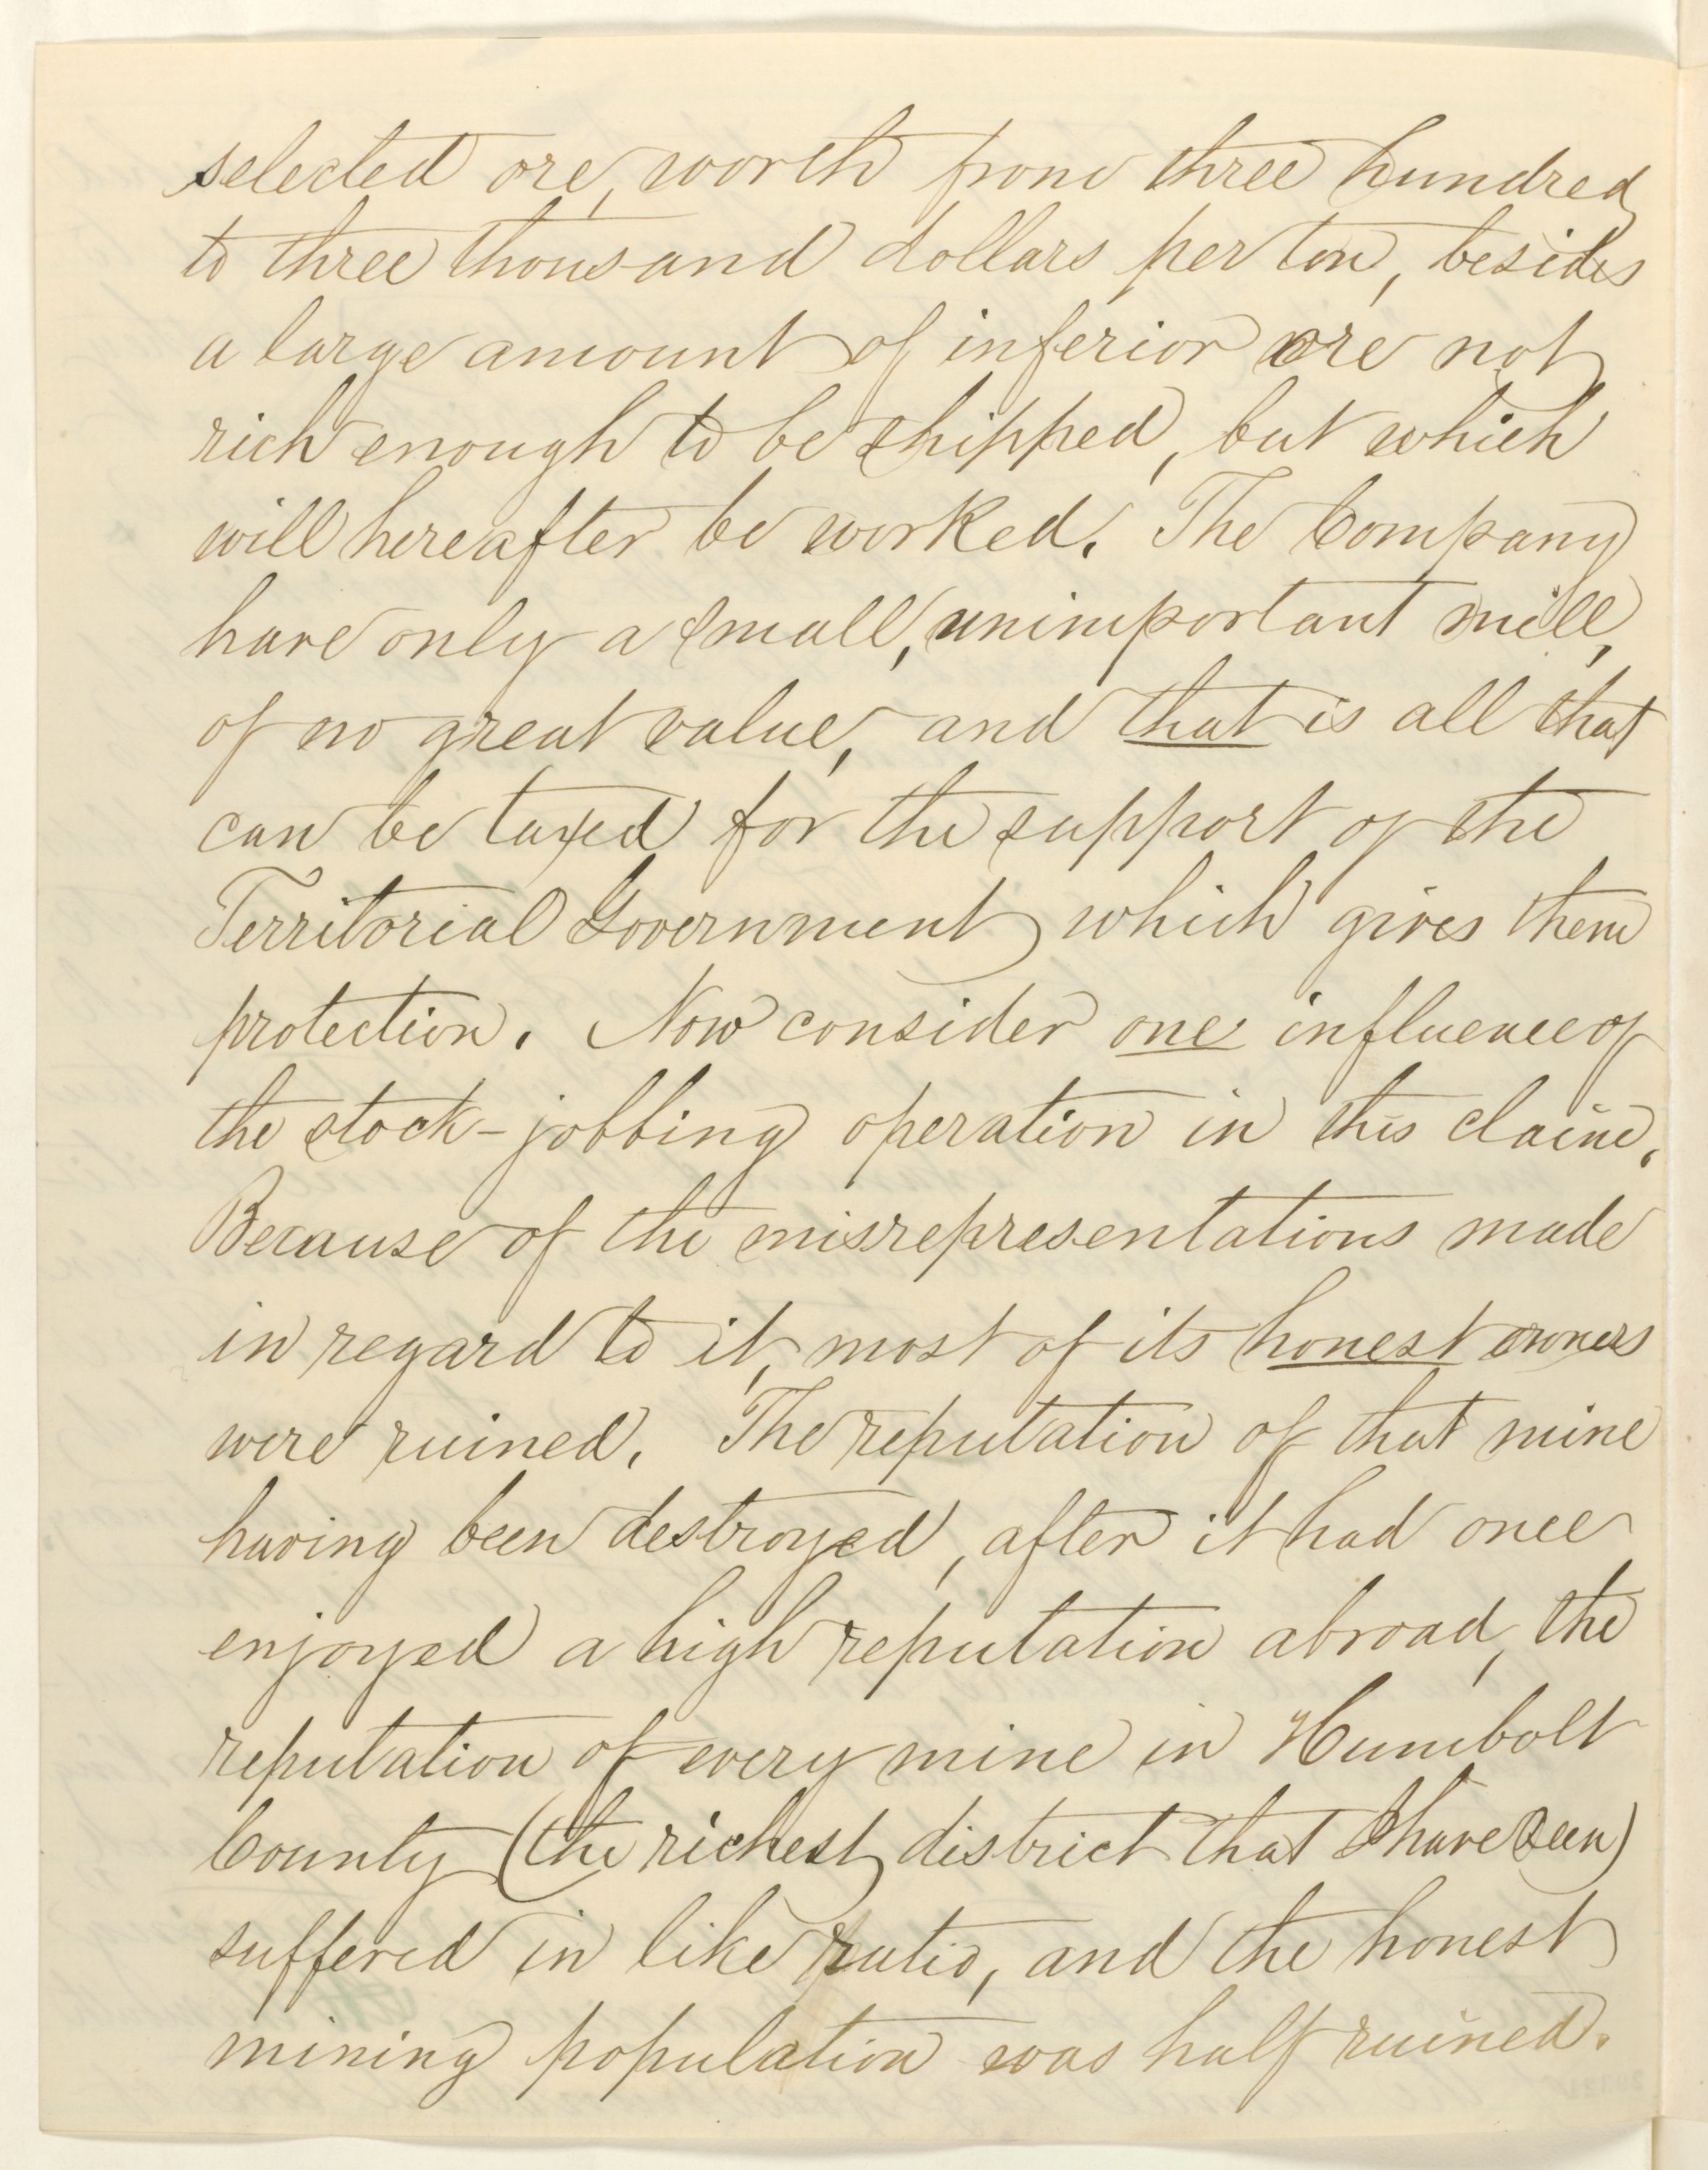 selected ore, worth from three hundred
to three thousand dollars per ton, besides
a large amount of inferior ore not
rich enough to be shipped, but which
will hereafter be worked. The Company
have only a small, unimportant mill,
of no great value, and that is all that
can be taxed for the support of the
Territorial Government which gives them
protection. Now consider one influence of
the stock-jobbing operation in this claim.
Because of the misrepresentations made
in regard to it, most of its honest owners
were ruined. The reputation of that mine
having been destroyed, after it had once
enjoyed a high reputation abroad, the
reputation of every mine in Humbolt
County (the richest district that I have seen)
suffered in like ratio, and the honest
mining population was half ruined.